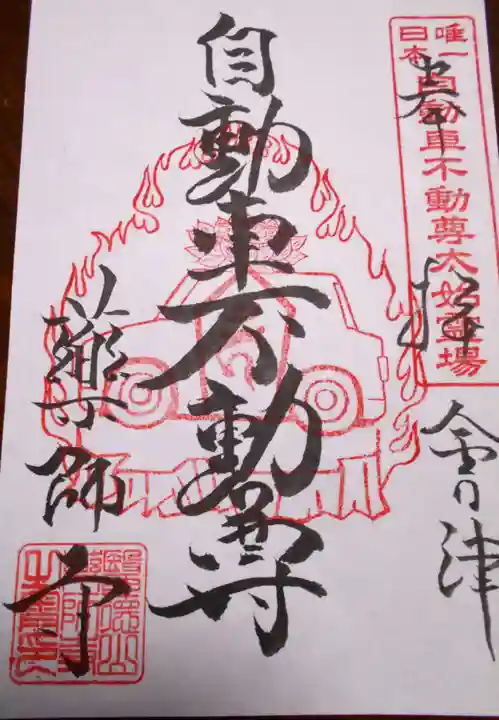 唯一
日本
自動車不動尊大始霊場
奉拝
会津
自動車不動尊
薬師寺